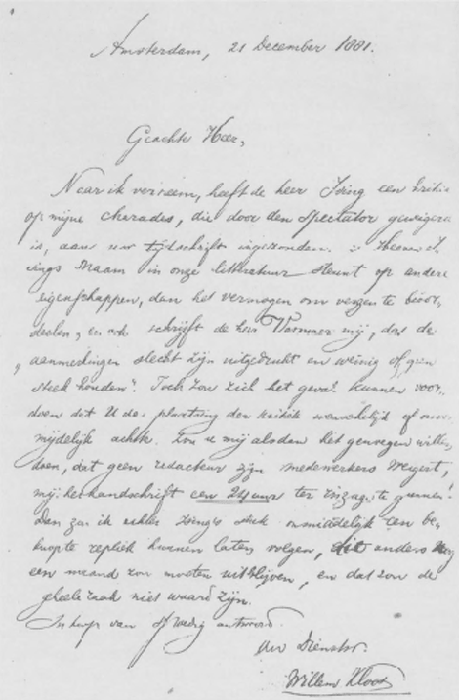 Amsterdam, 21 December 1881.
Geachte Heer,
Naar ik verneem, heeft de heer Ising een kritiek
op mijne charades, die door den Spectator geweigerd
is, aan uw tijdschrift ingezonden. Heeren I-
sings naam in onze letterkunde steunt op andere
eigenschappen, dan het vermogen om verzen te beoor-
deelen, en ook schrijft de heer Vosmaer mij, dat de
"aanmerkingen slecht zijn uitgedrukt en weinig of geen
steek houden". Toch zou zich het geval kunnen voor-
doen dat U de plaatsing der kritiek wenschelijk of onver-
mijdelijk achtte. Zou u mij alsdan het genoegen willen
doen, dat geen redacteur zijn medewerkers weigert,
mij het handschrift een 24 uur ter inzage te gunnen?
Dan zou ik achter Isings stuk onmiddelijk een be-
knopte repliek kunnen laten volgen, die anders nog
een maand zou moeten uitblijven, en dat zou de
geheele zaak niet waard zijn.
In hoop van spoedig antwoord.
Uw Dienstw.
Willem Kloos